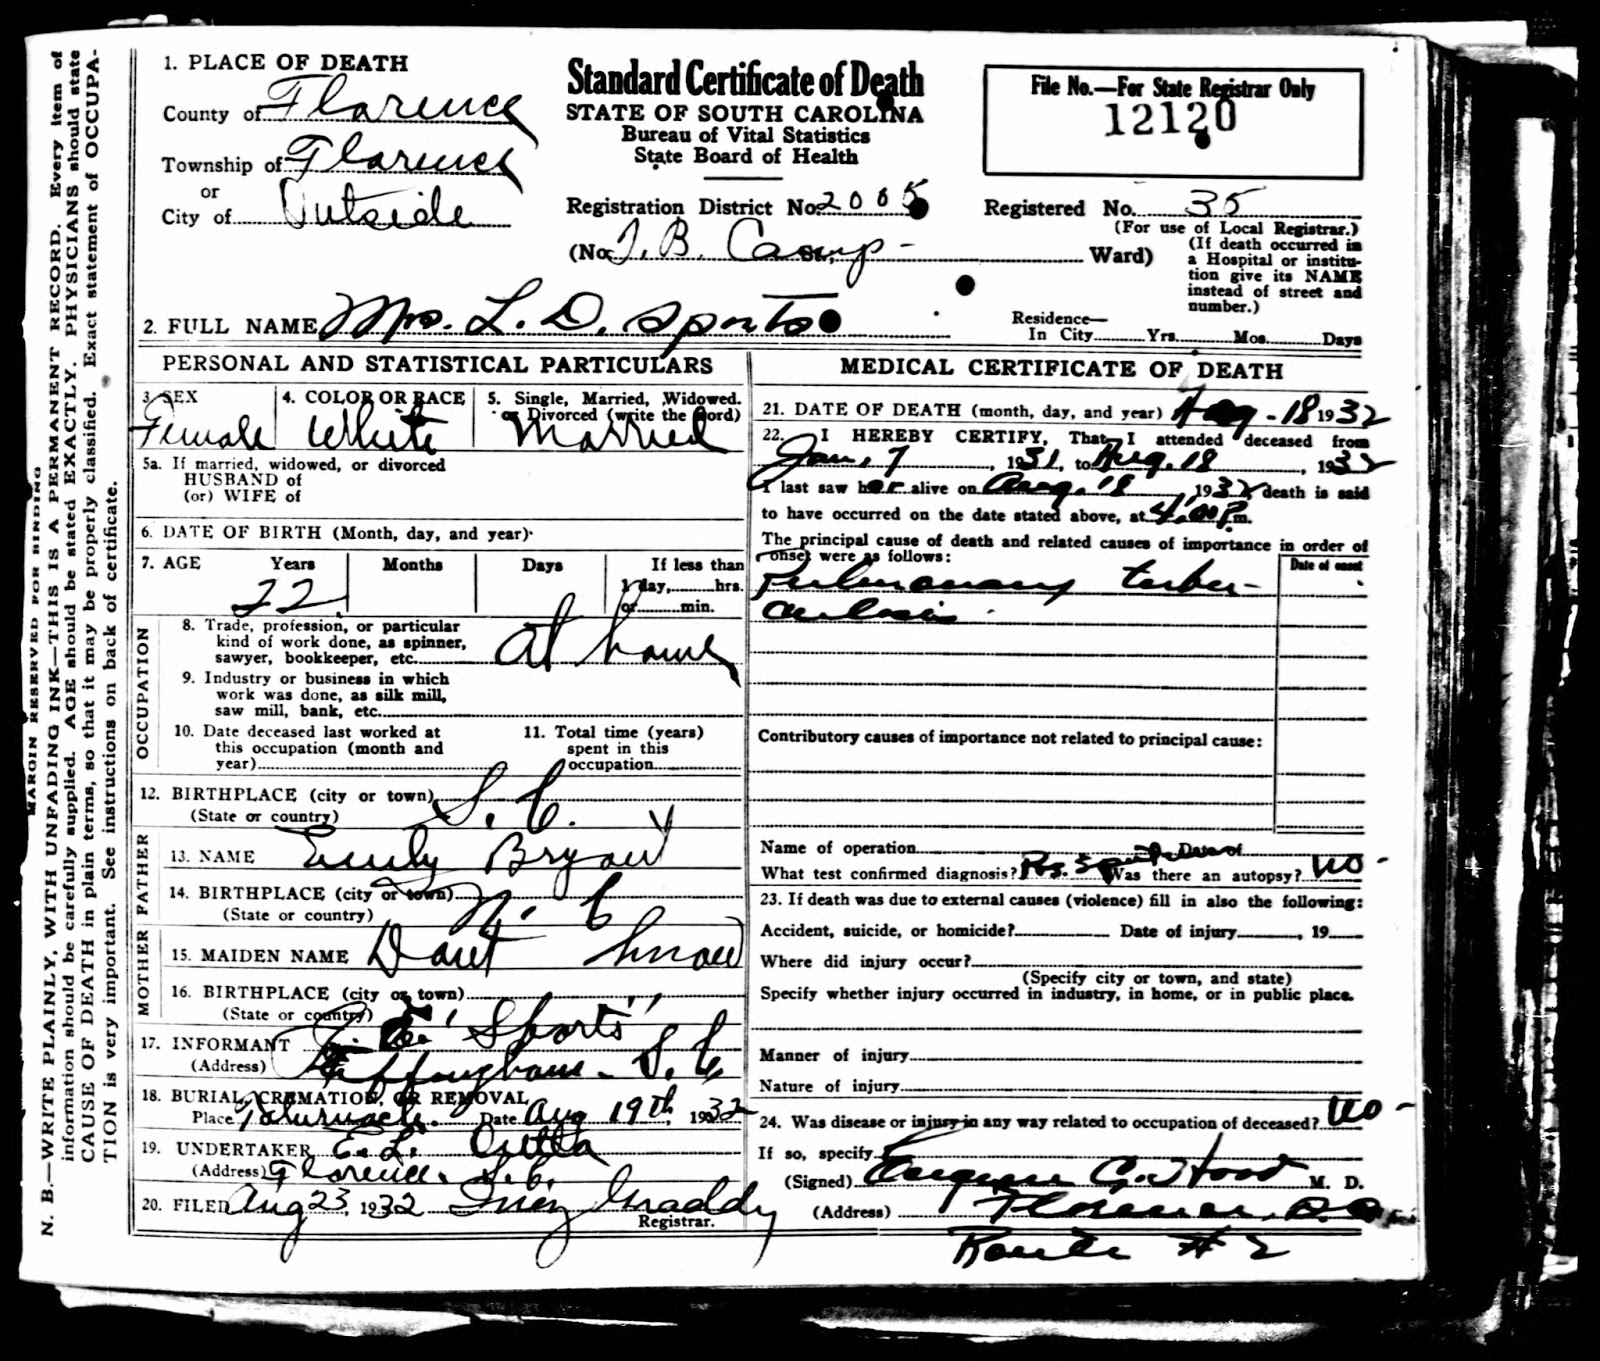 N. B.—WRITE PLAINLY, WITH UNFADING INK—THIS IS A PERMANENT RECORD. Every item of
information should be carefully supplied. AGE should be stated EXACTLY. PHYSICIANS should state
CAUSE OF DEATH in plain terms, so that it may be properly classified. Exact statement of OCCUPA-
TION is very important. See instructions on back of certificate.
MARGIN RESERVED FOR BINDING
1. PLACE OF DEATH
County of Florence
Township of Florence
or
City of Outside
Standard Certificate of Death
STATE OF SOUTH CAROLINA
Bureau of Vital Statistics
State Board of Health
File No.—For State Registrar Only
12120
Registration District No. 2005
Registered No. 35
(For use of Local Registrar.)
(No. T. B. Camp - St., Ward)
(If death occurred in
a Hospital or institu-
tion give its NAME
instead of street and
number.)
2. FULL NAME Mrs. L. D. Sports
Residence—
In City Yrs. Mos. Days
PERSONAL AND STATISTICAL PARTICULARS
3. SEX
Female
4. COLOR OR RACE
White
5. Single, Married, Widowed.
or Divorced (write the word)
Married
5a. If married, widowed, or divorced
HUSBAND of
(or) WIFE of
6. DATE OF BIRTH (Month, day, and year)
7. AGE Years Months Days If less than
1 day, hrs.
22. or min.
OCCUPATION
8. Trade, profession, or particular
kind of work done, as spinner,
sawyer, bookkeeper, etc. At home
9. Industry or business in which
work was done, as silk mill,
saw mill, bank, etc.
10. Date deceased last worked at
this occupation (month and
year)
11. Total time (years)
spent in this
occupation
12. BIRTHPLACE (city or town)
(State or country) S. C.
FATHER
13. NAME Emily Bryant
14. BIRTHPLACE (city or town)
(State or country) N. C
MOTHER
15. MAIDEN NAME Dont know
16. BIRTHPLACE (city or town)
(State or country)
17. INFORMANT Sports
(Address) Effingham - S. C.
18. BURIAL, CREMATION, OR REMOVAL
Place Tabernacle. Date Aug 19th, 1932
19. UNDERTAKER E. L.
(Address) Florence. S. C.
20. FILED Aug 23, 1932 Inez Graddy
Registrar.
MEDICAL CERTIFICATE OF DEATH
21. DATE OF DEATH (month, day, and year) Aug - 18 1932
22. I HEREBY CERTIFY, That I attended deceased from
Jan, 7, 1931, to Aug. 18, 1932
I last saw her alive on Aug. 18, 1932, death is said
to have occurred on the date stated above, at 4:00 P. m.
The principal cause of death and related causes of importance in order of
onset were as follows:
Date of onset
Pulmonary tuber-
culosis.
Contributory causes of importance not related to principal cause:
Name of operation Date of
What test confirmed diagnosis? Pos. sputum Was there an autopsy? no -
23. If death was due to external causes (violence) fill in also the following:
Accident, suicide, or homicide? Date of injury , 19
Where did injury occur?
(Specify city or town, and state)
Specify whether injury occurred in industry, in home, or in public place.
Manner of injury
Nature of injury
24. Was disease or injury in any way related to occupation of deceased? no -
If so, specify
(Signed) Eugene C. Hood M. D.
(Address) Florence, S. C.
Route # 2